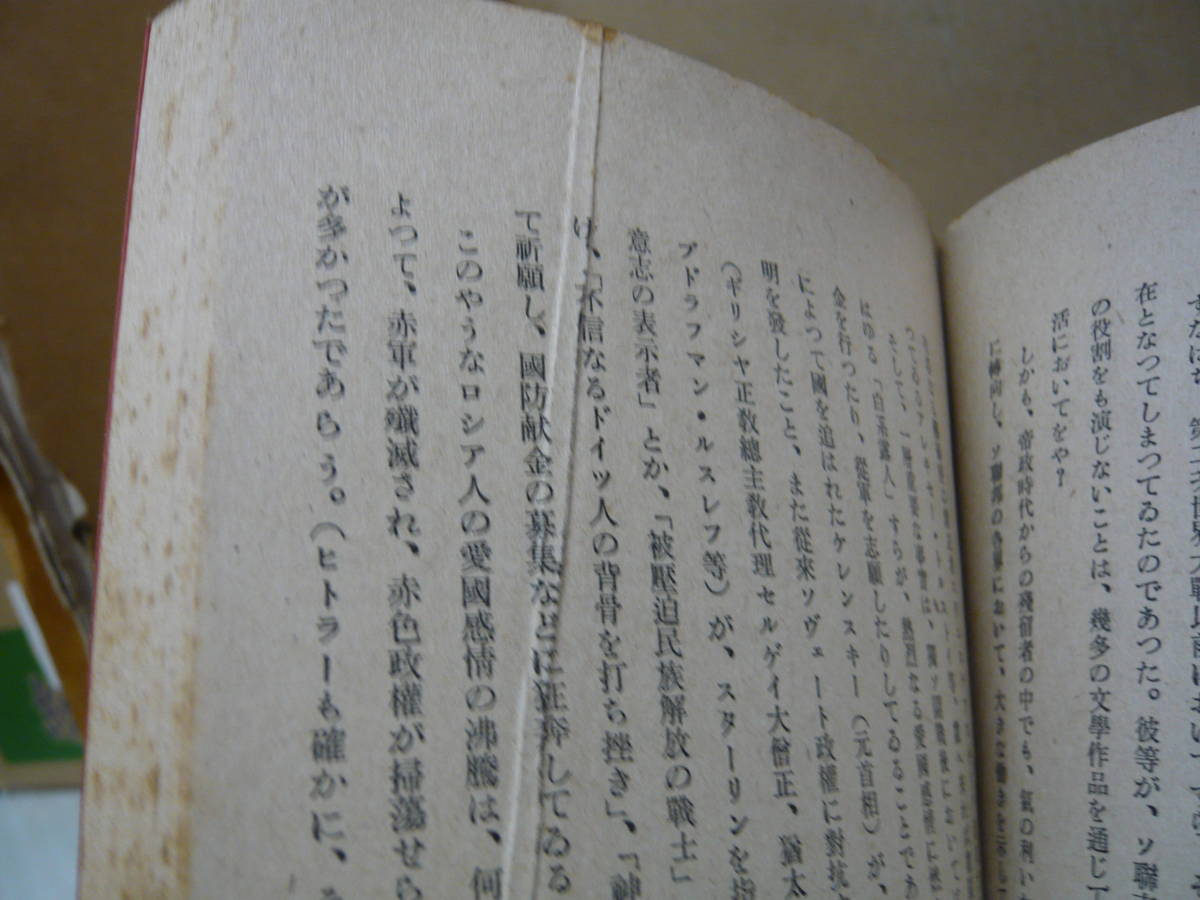 在となつてしまつてゐたのであつた。彼等が、ソ聯
の役割をも演じないことは、幾多の文學作品を通じて
活においてをや?
しかも、帝政時代からの殘留者の中でも、氣の利い
に轉向し、ソ聯邦の各界において、大きな働きを示し
そして、一層重要な事實は、獨ソ開戰後において
はゆる「白系露人」すらが、熱烈なる愛國感情に
金を行つたり、從軍を志願したりしてゐることであ
によつて國を追はれたケレンスキー(元首相)が、
明を發したこと、また從來ソヴェート政權に對抗
(ギリシヤ正敎總主敎代理セルゲイ大僧正、猶太
ブドラフマン・ルスレフ等)が、スターリンを指
意志の表示者」とか、「被壓迫民族解放の戰士」
け、「不信なるドイツ人の背骨を打ち挫き」、「神
て祈願し、國防献金の募集などに狂奔してゐる
このやうなロシア人の愛國感情の沸騰は、何
よつて、赤軍が殲滅され、赤色政權が掃蕩せら
が多かつたであらう。(ヒトラーも確かに、そ